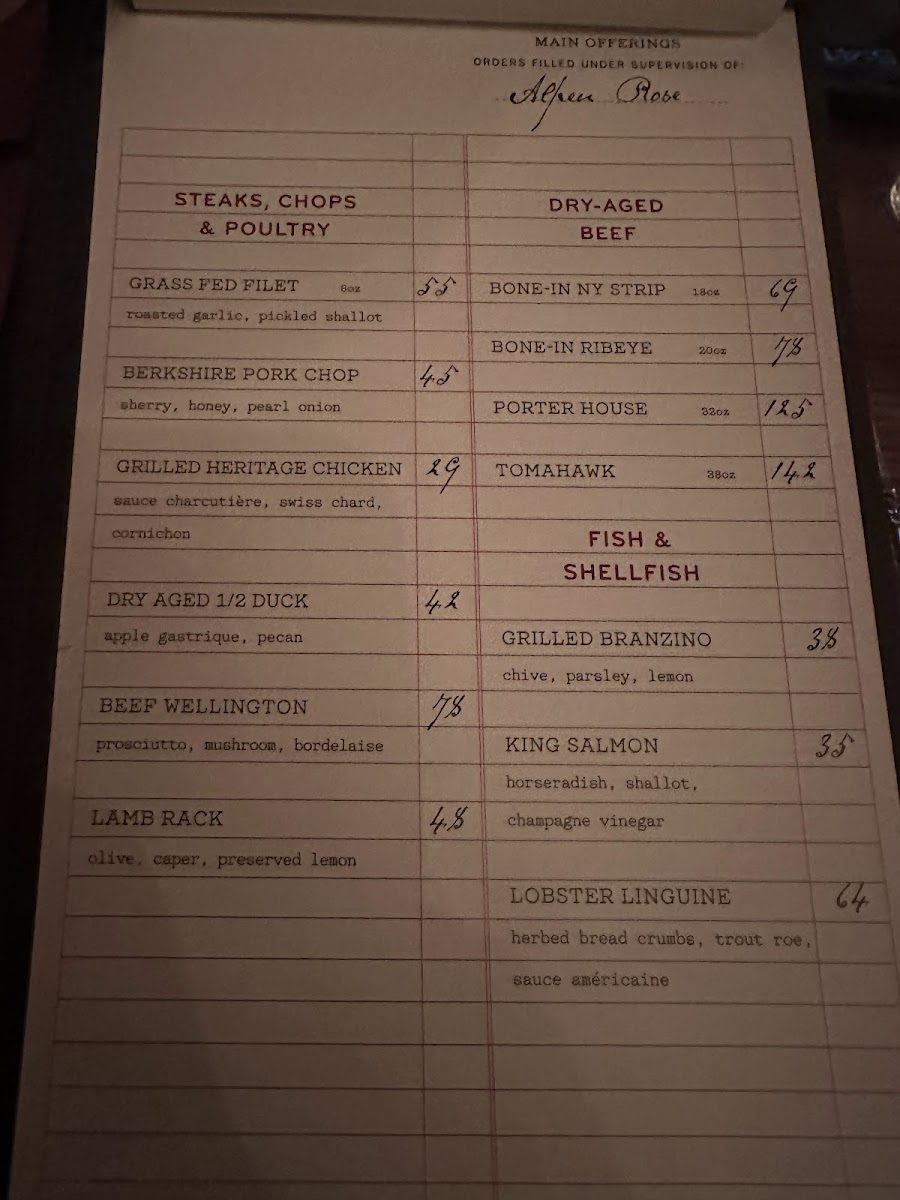 MAIN OFFERINGS
ORDERS FILLED UNDER SUPERVISION OF:
Alpen Rose
STEAKS, CHOPS
& POULTRY
GRASS FED FILET 8oz 55
roasted garlic, pickled shallot
BERKSHIRE PORK CHOP 45
sherry, honey, pearl onion
GRILLED HERITAGE CHICKEN 29
sauce charcutière, swiss chard,
cornichon
DRY AGED 1/2 DUCK 42
apple gastrique, pecan
BEEF WELLINGTON 78
prosciutto, mushroom, bordelaise
LAMB RACK 48
olive, caper, preserved lemon
DRY-AGED
BEEF
BONE-IN NY STRIP 18oz 69
BONE-IN RIBEYE 20oz 78
PORTER HOUSE 32oz 125
TOMAHAWK 38oz 142
FISH &
SHELLFISH
GRILLED BRANZINO 38
chive, parsley, lemon
KING SALMON 35
horseradish, shallot,
champagne vinegar
LOBSTER LINGUINE 64
herbed bread crumbs, trout roe,
sauce américaine